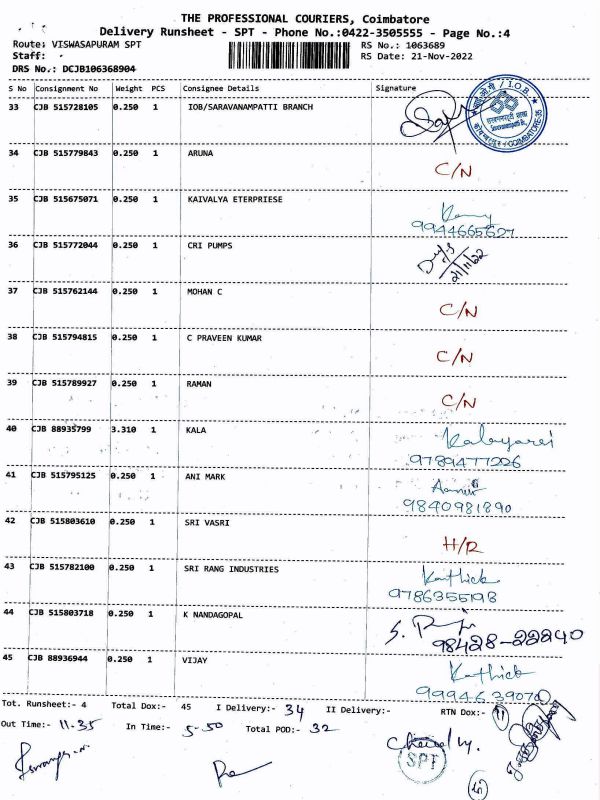 THE PROFESSIONAL COURIERS, Coimbatore
Delivery Runsheet - SPT - Phone No.:0422-3505555 - Page No.:4
Route: VISWASAPURAM SPT RS No.: 1063689
Staff: RS Date: 21-Nov-2022
DRS No.: DCJB106368904
S No Consignment No Weight PCS Consignee Details Signature
33 CJB 515728105 0.250 1 IOB/SARAVANAMPATTI BRANCH
34 CJB 515779843 0.250 1 ARUNA C/N
35 CJB 515675071 0.250 1 KAIVALYA ETERPRIESE
9944665527
36 CJB 515772044 0.250 1 CRI PUMPS
21/11/22
37 CJB 515762144 0.250 1 MOHAN C C/N
38 CJB 515794815 0.250 1 C PRAVEEN KUMAR C/N
39 CJB 515789927 0.250 1 RAMAN C/N
40 CJB 88935799 3.310 1 KALA
9789477226
41 CJB 515795125 0.250 1 ANI MARK
9840981890
42 CJB 515803610 0.250 1 SRI VASRI H/R
43 CJB 515782100 0.250 1 SRI RANG INDUSTRIES Kathick
9786355198
44 CJB 515803718 0.250 1 K NANDAGOPAL
98428-22240
45 CJB 88936944 0.250 1 VIJAY Kathick
Tot. Runsheet:- 4 Total Dox:- 45 I Delivery:- 34 II Delivery:- RTN Dox:- 11
Out Time:- 11.35 In Time:- 5-50 Total POD:- 32
SPT